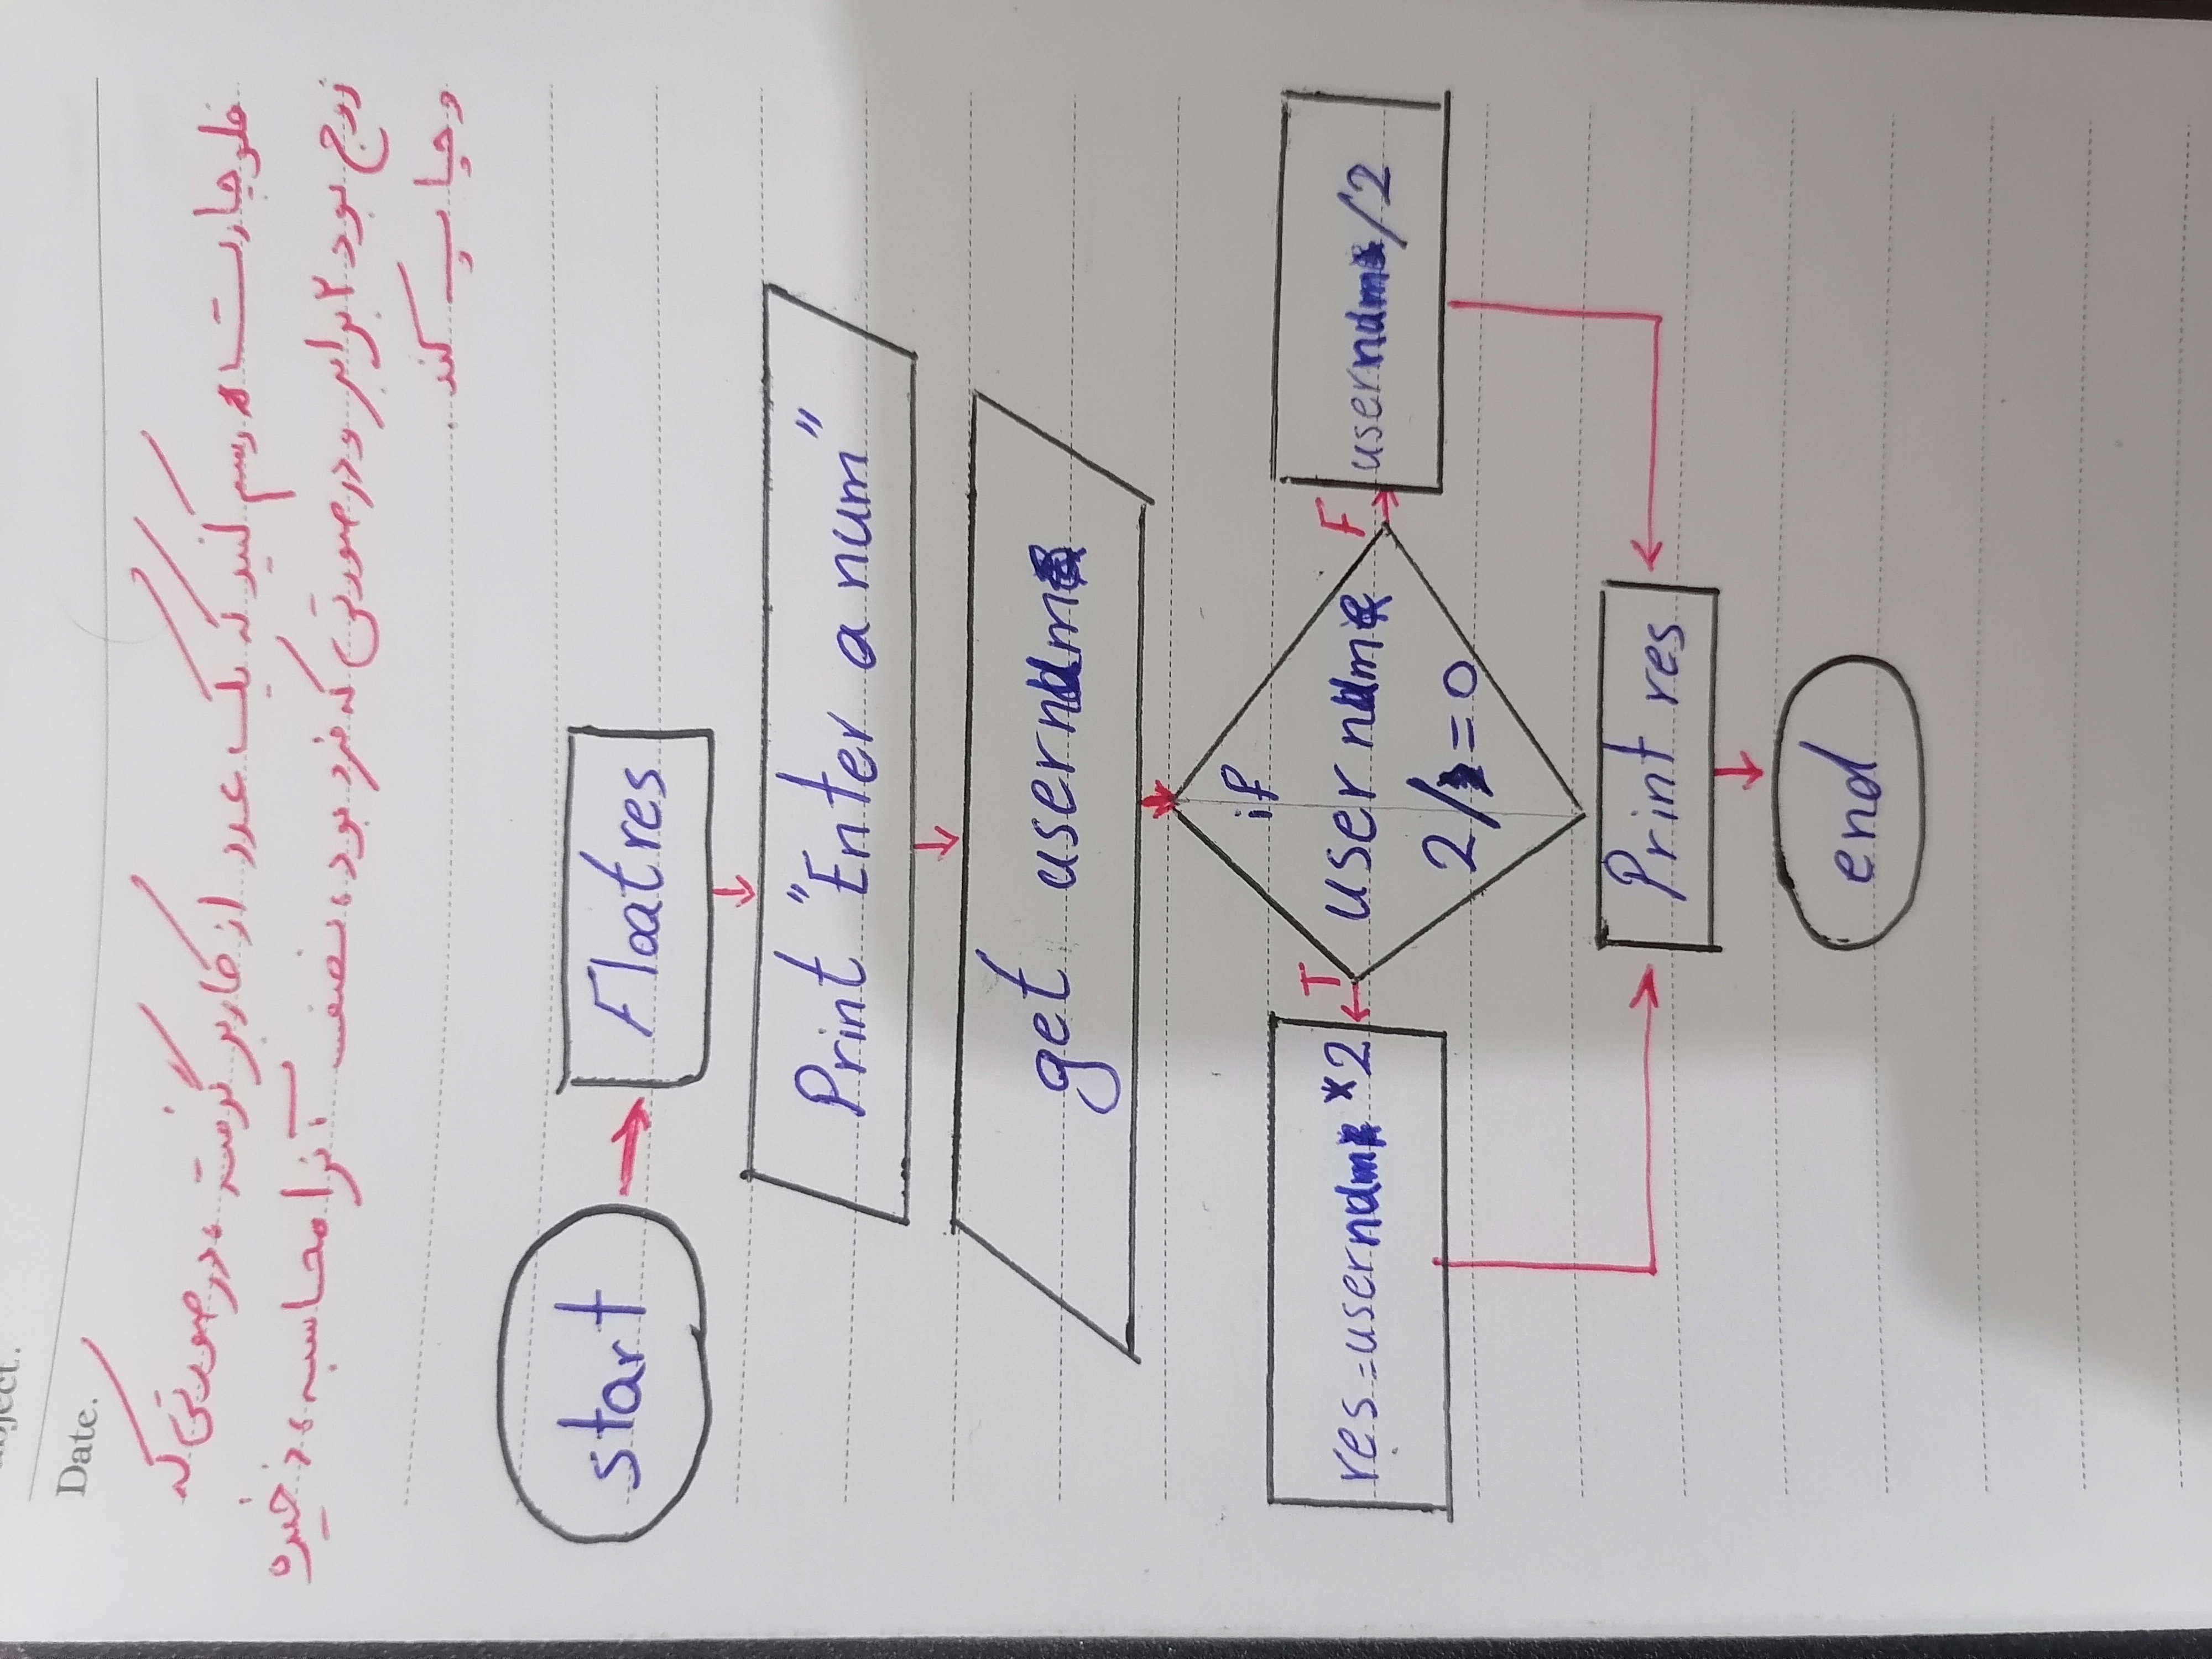 Date.
فلوچارت ۵ رسم کنید که یک عدد از کاربر گرفته، در صورتی که
زوج بود ۲ برابر و در صورتی که فرد بود، نصف آنرا محاسبه، ذخیره
و چاپ کند.
start
Float res
Print "Enter a num"
get usernum
if
usernum
2/ =0
T
F
res=usernum*2
usernum/2
Print res
end